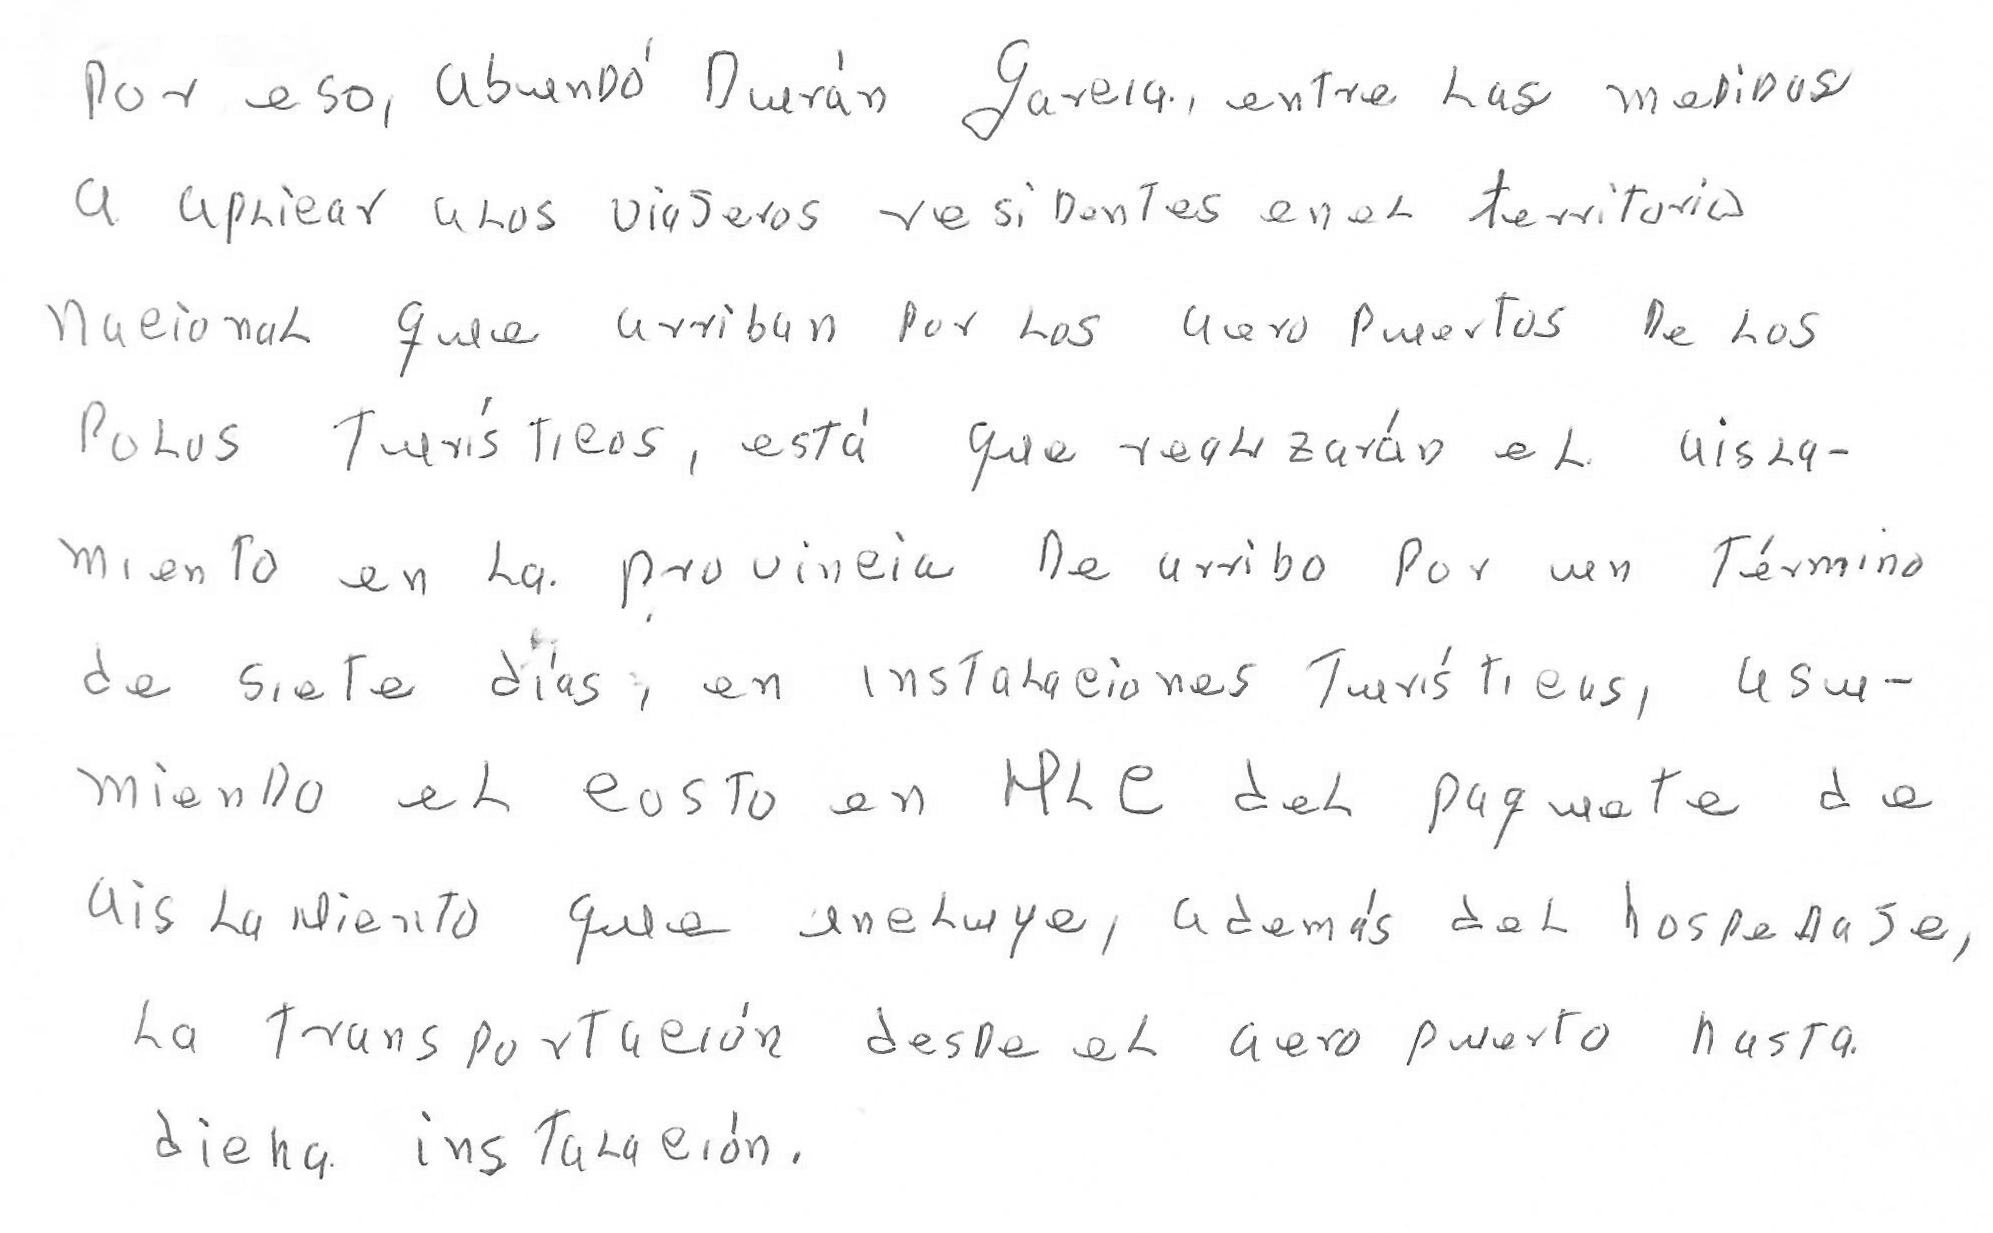 Por eso, abundó Durán García, entre las medidas
a aplicar a los viajeros residentes en el territorio
nacional que arriban por los aeropuertos de los
Polos Turísticos, está que realizarán el aisla-
miento en la provincia de arribo por un término
de siete días, en instalaciones Turísticas, asu-
miendo el costo en MLC del paquete de
aislamiento que incluye, además del hospedaje,
la transportación desde el aeropuerto hasta
dicha instalación.